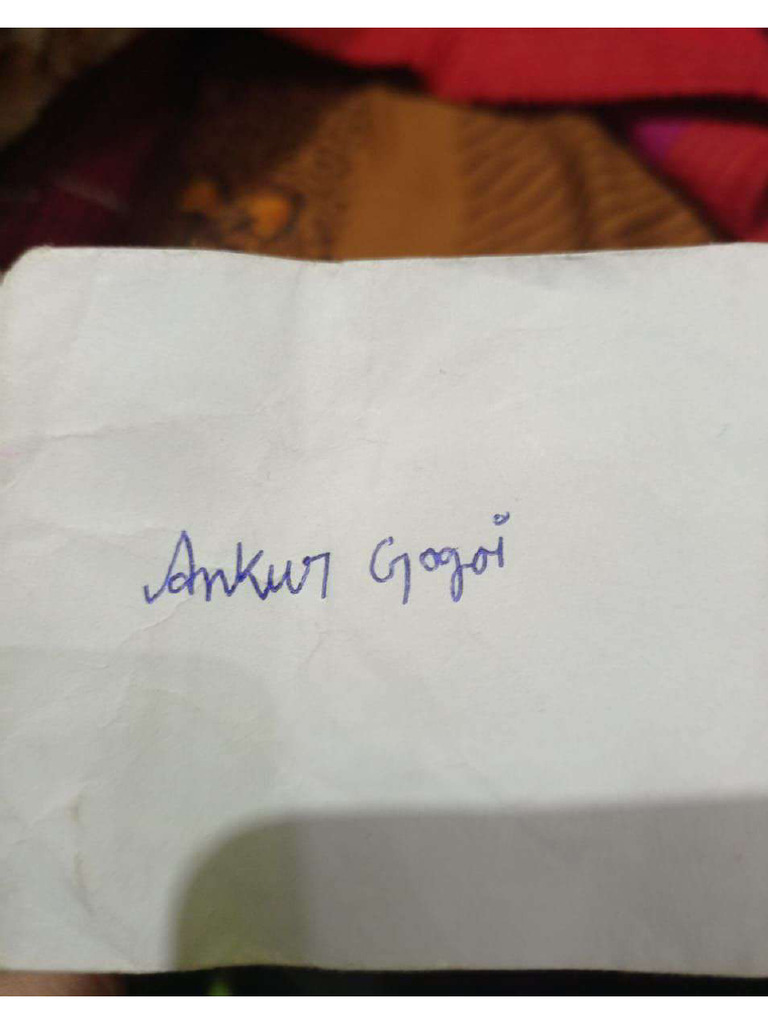 Ankur Gogoi